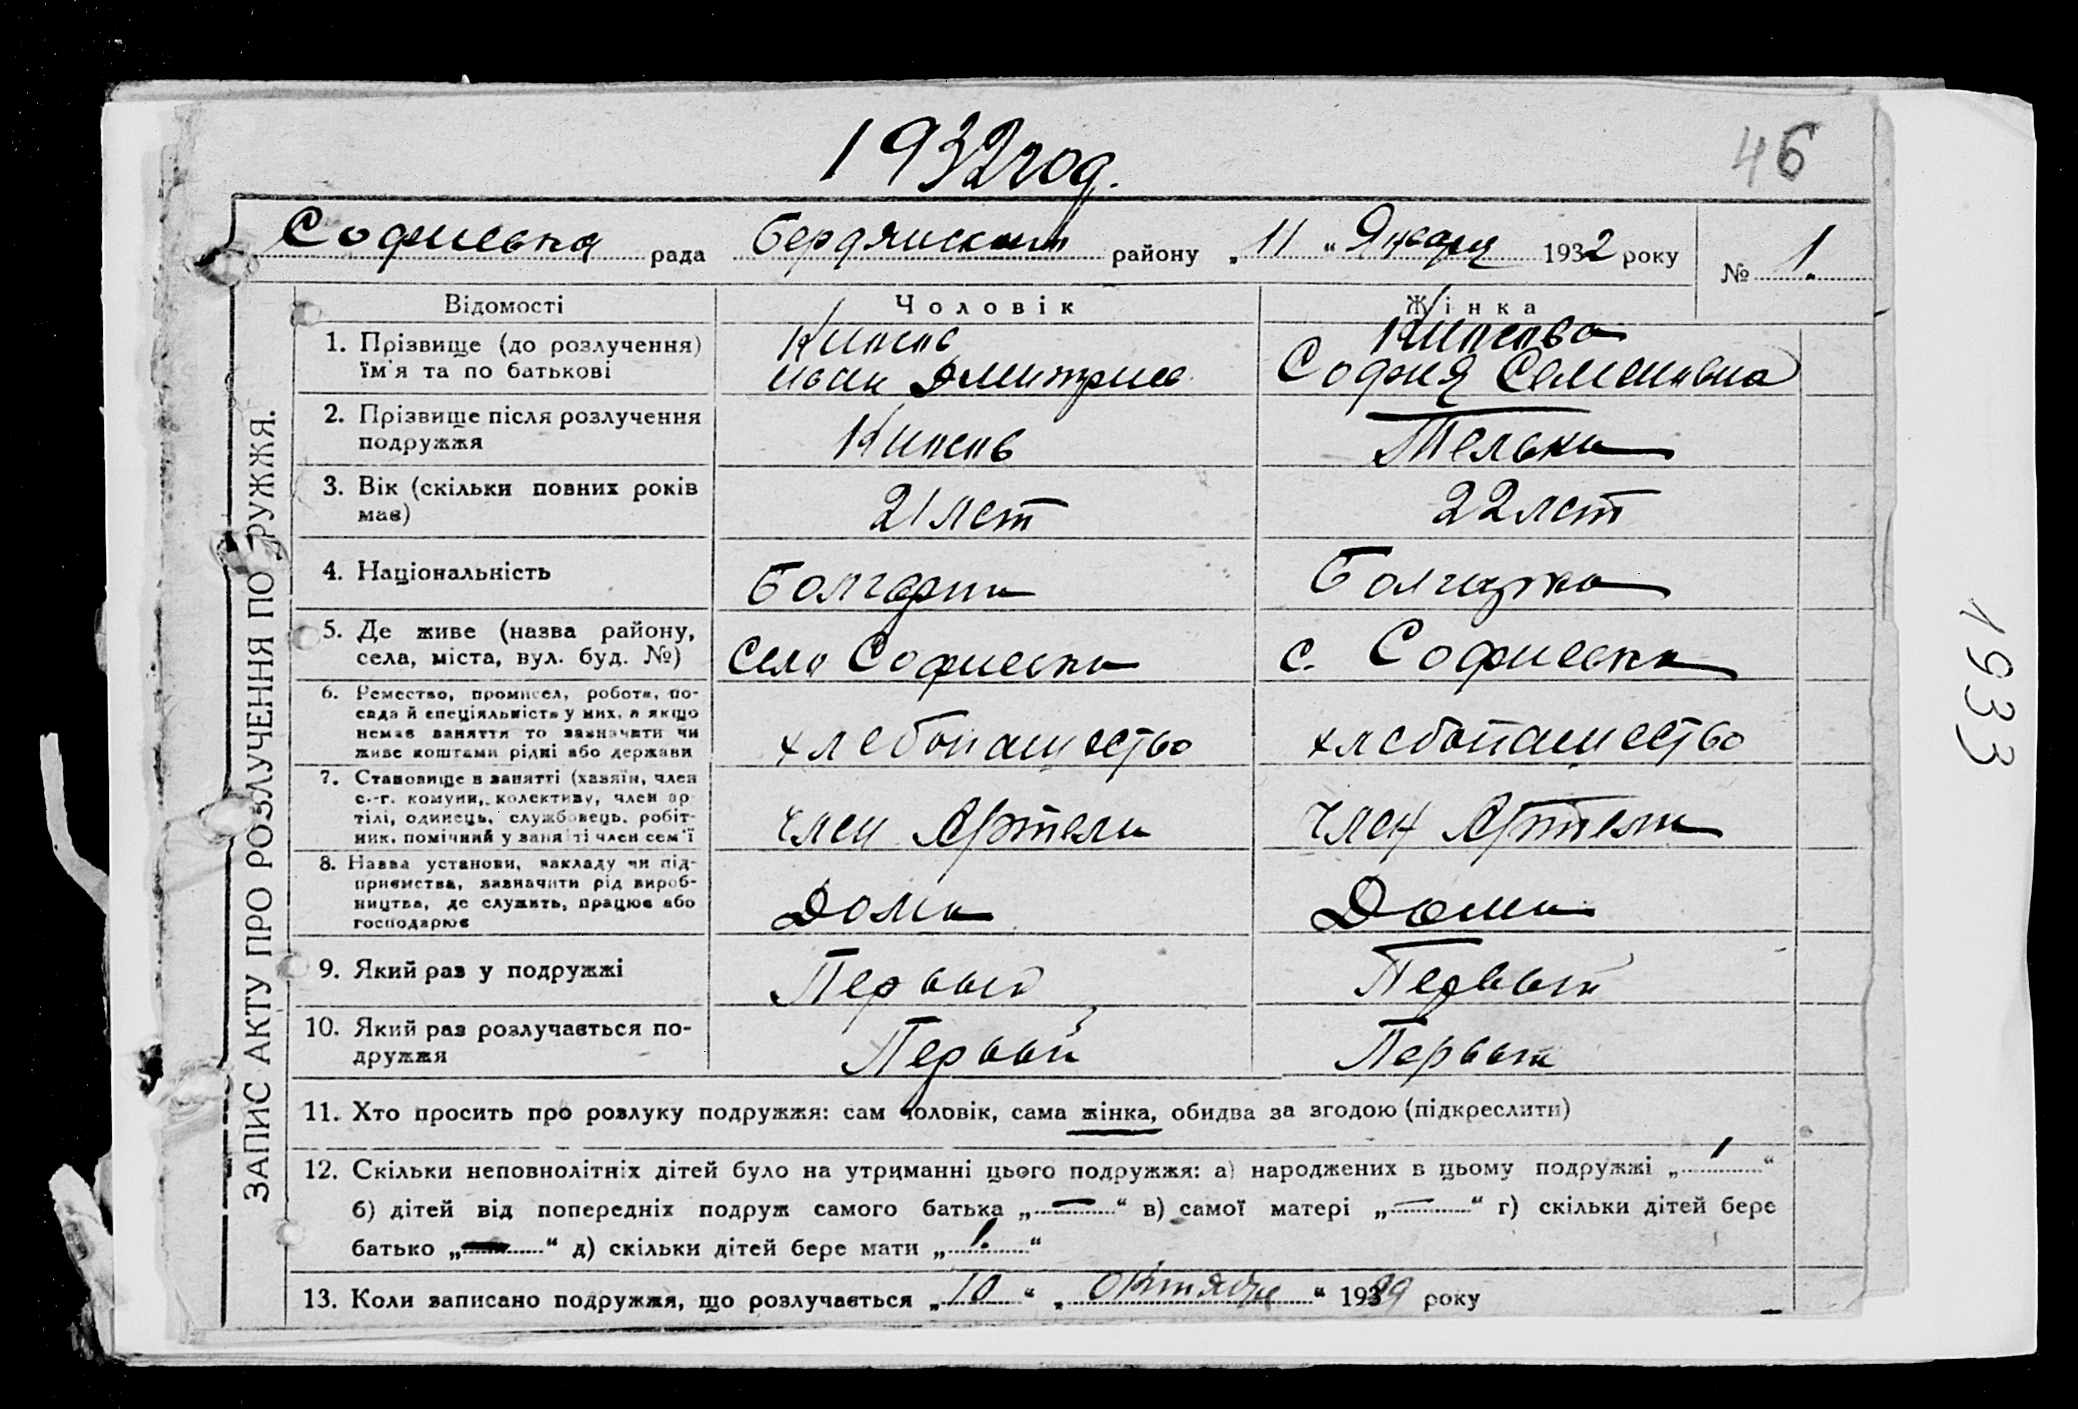 1932 год.
46
Софиевка рада Бердянский району „ 11 “ Января 1932 року № 1.
Відомості Чоловік Жінка
1. Прізвище (до розлучення) їм'я та по батькові
Иван Дмитриев
София Семеновна
2. Прізвище після розлучення подружжя
3. Вік (скільки повних років має)
21 лет
22 лет
4. Національність
Болгарин
Болгарка
5. Де живе (назва району, села, міста, вул. буд. №)
Село Софиевка
с. Софиевка
6. Ремество, промисел, робота, посада й спеціяльність у них, а якщо немає заняття то зазначити чи живе коштами рідні або держави
хлебопашество
хлебопашество
7. Становище в занятті (хазяїн, член с.-г. комуни, колективу, член артілі, одинець, службовець, робітник, помічний у занятті член сем'ї
член Артели
член Артели
8. Назва установи, закладу чи підприємства, зазначити рід виробництва, де служить, працює або господарює
Дома
Дома
9. Який раз у подружжі
Первый
Первый
10. Який раз розлучається подружжя
Первый
Первый
11. Хто просить про розлуку подружжя: сам чоловік, сама жінка, обидва за згодою (підкреслити)
12. Скільки неповнолітніх дітей було на утриманні цього подружжя: а) народжених в цьому подружжі „ 1 “
б) дітей від попередніх подруж самого батька „ — “ в) самої матері „ — “ г) скільки дітей бере
батько „ — “ д) скільки дітей бере мати „ 1. “
13. Коли записано подружжя, що розлучається „ 10 “ „ Октября “ року
ЗАПИС АКТУ ПРО РОЗЛУЧЕННЯ ПОДРУЖЖЯ.
1933